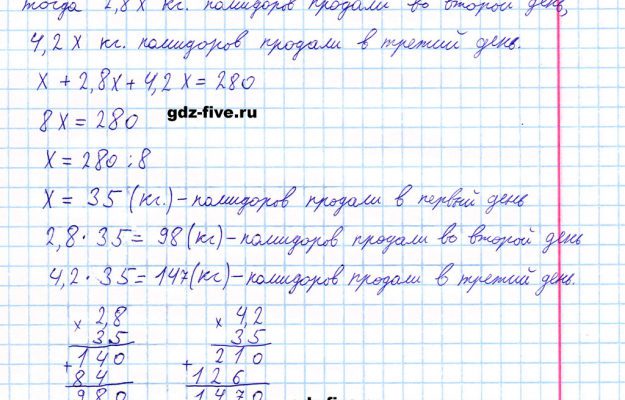 тогда 2,8x кг. помидоров продали во второй день,
4,2x кг. помидоров продали в третий день.
x + 2,8x + 4,2x = 280
8x = 280
gdz-five.ru
x = 280 : 8
x = 35 (кг.) – помидоров продали в первый день
2,8 · 35 = 98 (кг) – помидоров продали во второй день
4,2 · 35 = 147 (кг) – помидоров продали в третий день.
x 2,8 x 4,2
35 35
+ 140 + 210
84 126
980 1470